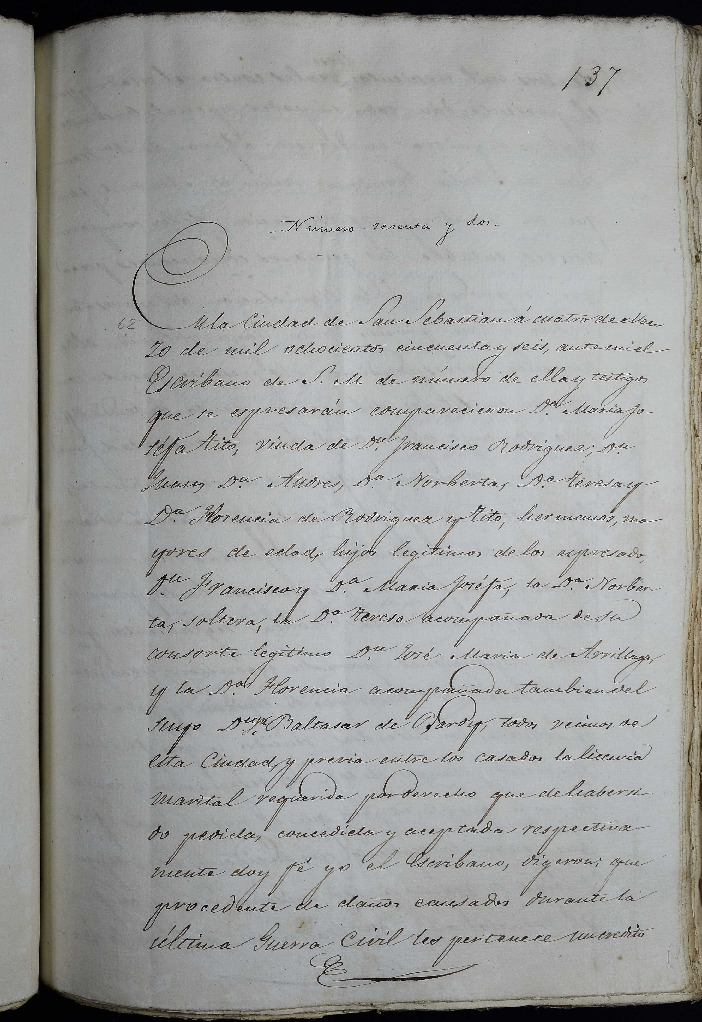 137
Número sesenta y dos.
62 En la Ciudad de San Sebastian á cuatro de Mar-
zo de mil ochocientos cincuenta y seis, ante mi el
Escribano de S. M. de número de ella y testigos
que se espresarán comparecieron D.ª Maria Jo-
sefa Tito, viuda de D.n Francisco Rodriguez; D.n
Juan, D.n Andres, D.ª Norberta, D.ª Teresa y
D.ª Florencia de Rodriguez y Tito, hermanos, ma-
yores de edad, hijos legitimos de los espresados
D.n Francisco y D.ª Maria Joséfa, la D.ª Norber-
ta, soltera, la D.ª Teresa acompañada de su
consorte legitimo D.n José Maria de Arrillaga,
y la D.ª Florencia acompañada tambien del
suyo D.n Baltasar de todos vecinos de
esta Ciudad, y previa entre los casados la licencia
marital requerida por derecho que de haber si-
do pedida, concedida y aceptada respectiva-
mente doy fé yo el Escribano, digeron: que
procedente de daños causados durante la
última Guerra Civil les pertenece un credito